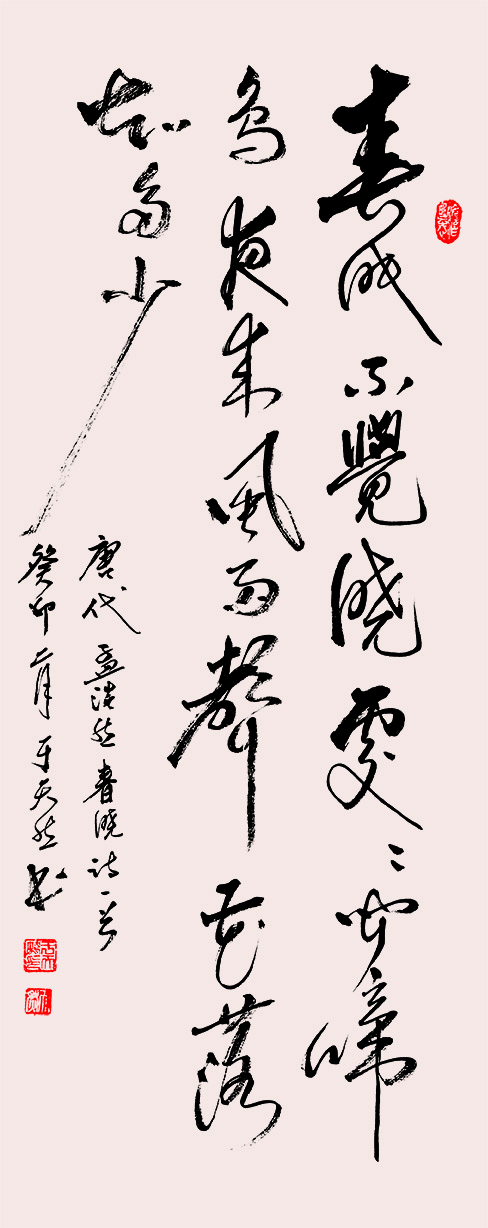 春眠不覺曉處〻聞啼
鳥夜来風雨聲花落
知多少
唐代孟浩然春曉詩一首
癸卯二月于天然书